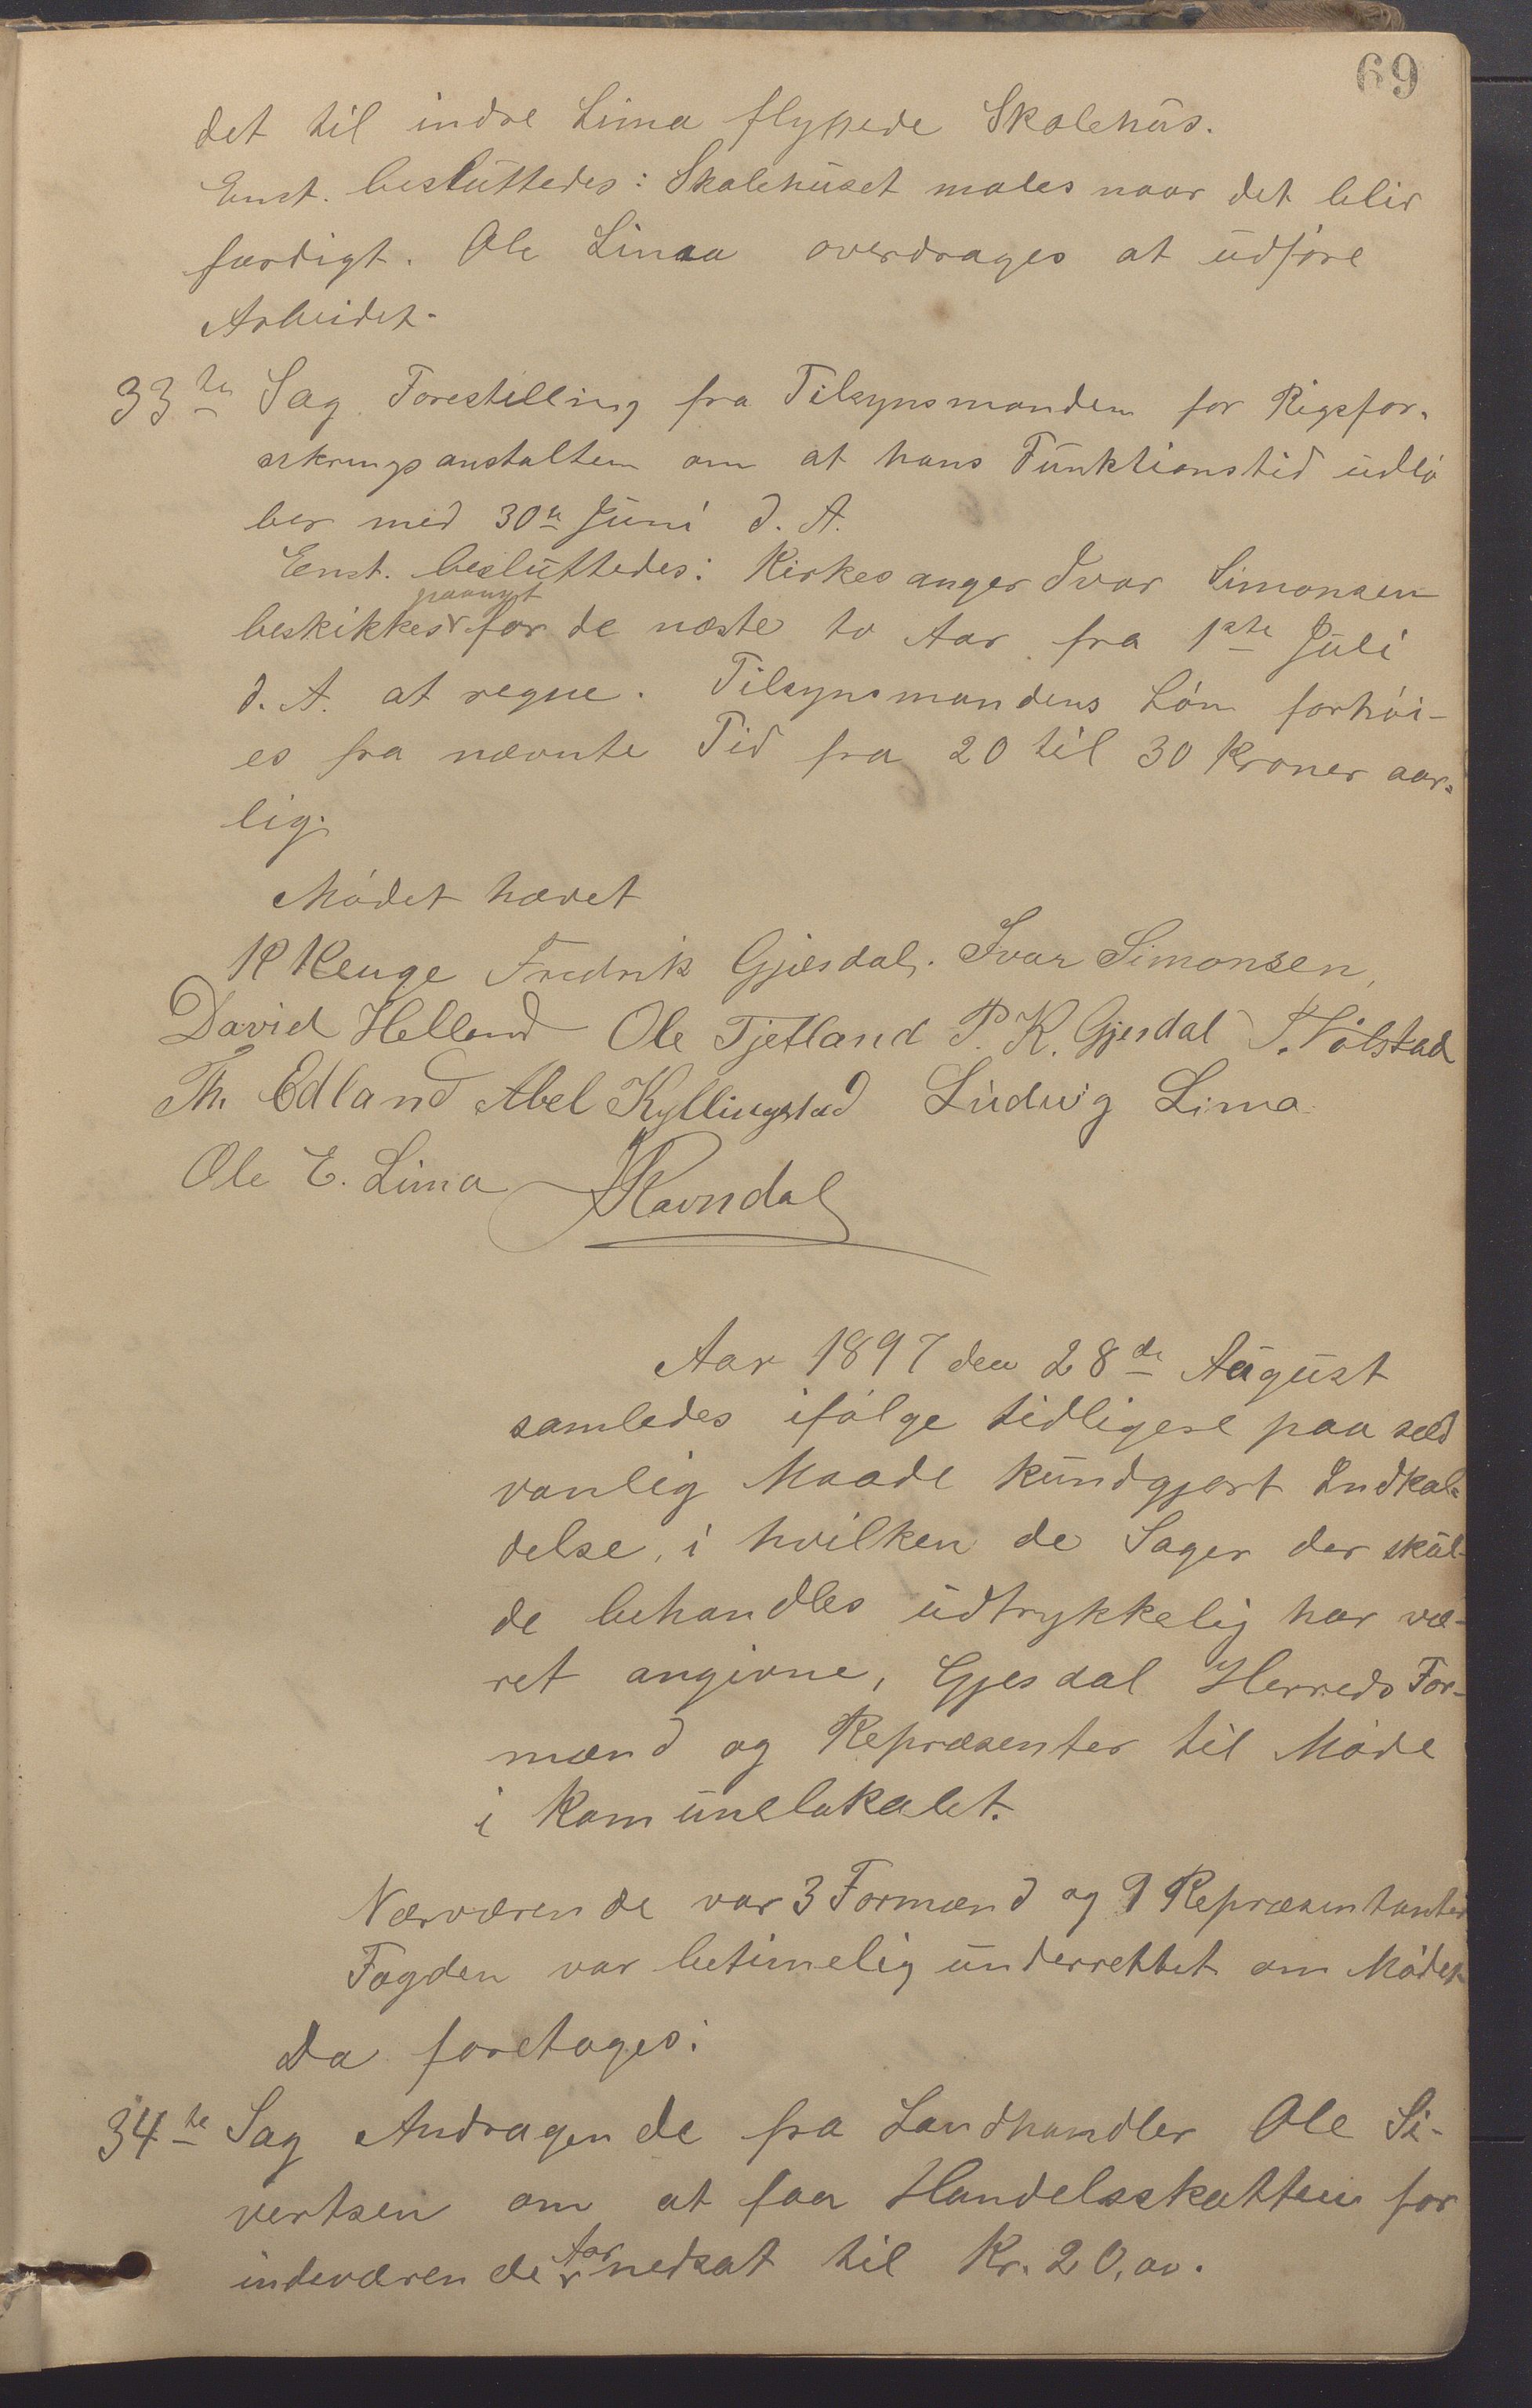 69
det til indre Lima flyttede Skolehus.
Enst. besluttedes: Skolehuset males naar det blir
færdigt. Ole Limaa overdrages at udføre
Arbeidet.
33te Sag. Forestilling fra Tilsynsmanden for Rigsfor-
sikringsanstalten om at hans Funktionstid udlø
ber med 30te Juni d. A.
Enst. besluttedes: Kirkesanger Ivar Simonsen
paanyt
beskikkes for de næste to Aar fra 1ste Juli
d. A. at regne. Tilsynsmandens Løn forhøi-
es fra nævnte Tid fra 20 til 30 Kroner aar-
lig.
Mødet hævet
K Kenge Fredrik Gjesdal. Ivar Simonsen,
David Helland Ole Tjetland P. K. Gjesdal T. Ålstad
Th. Edland Abel Kyllingstad Ludwig Lima
Ole E. Lima Ravndal
Aar 1897 den 28de August
samledes ifølge tidligere paa sæd
vanlig Maade kundgjort Indkal-
delse, i hvilken de Sager der skul-
de behandles udtrykkelig har væ-
ret angivne, Gjesdal Herreds For-
mænd og Repræsenter til Møde
i Komunelokalet.
Nærværende var 3 Formænd og 9 Repræsentanter
Fogden var betimelig underrettet om Mødet
Da foretoges:
34te Sag Andragende fra Landhandler Ole Si-
vertsen om at faa Handelsskatten for
indeværende Aar nedsat til Kr. 20,00.